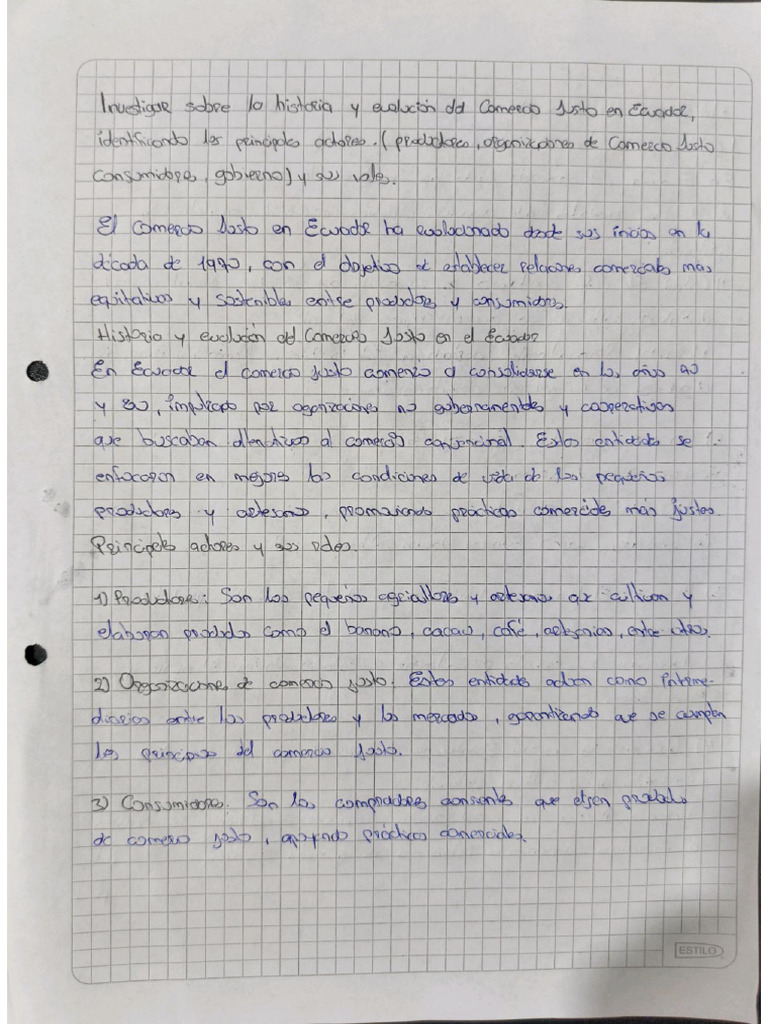 Investigar sobre la historia y evolución del Comercio Justo en Ecuador,
identificando los principales actores. (productores, organizaciones de Comercio Justo
Consumidores, gobierno) y sus roles.
El comercio Justo en Ecuador ha evolucionado desde sus inicios en la
década de 1970, con el objetivo de establecer relaciones comerciales más
equitativas y sostenibles entre productores y consumidores.
Historia y evolución del Comercio Justo en el Ecuador
En Ecuador el comercio justo comenzó a consolidarse en los años
y 80, impulsado por organizaciones no gubernamentales y cooperativas
que buscaban alternativas al comercio convencional. Estas entidades se
enfocaron en mejorar las condiciones de vida de los pequeños
productores y artesanos, promoviendo prácticas comerciales más justas.
Principales actores y sus roles.
1) Productores: Son los pequeños agricultores y artesanos que cultivan y
elaboran productos como el banano, cacao, café, artesanías, entre otros.
2) Organizaciones de comercio justo. Estas entidades actúan como interme-
diarios entre los productores y los mercados, garantizando que se cumplan
los principios del comercio justo.
3) Consumidores. Son los compradores conscientes que eligen productos
de comercio justo, apoyando prácticas comerciales.
ESTILO